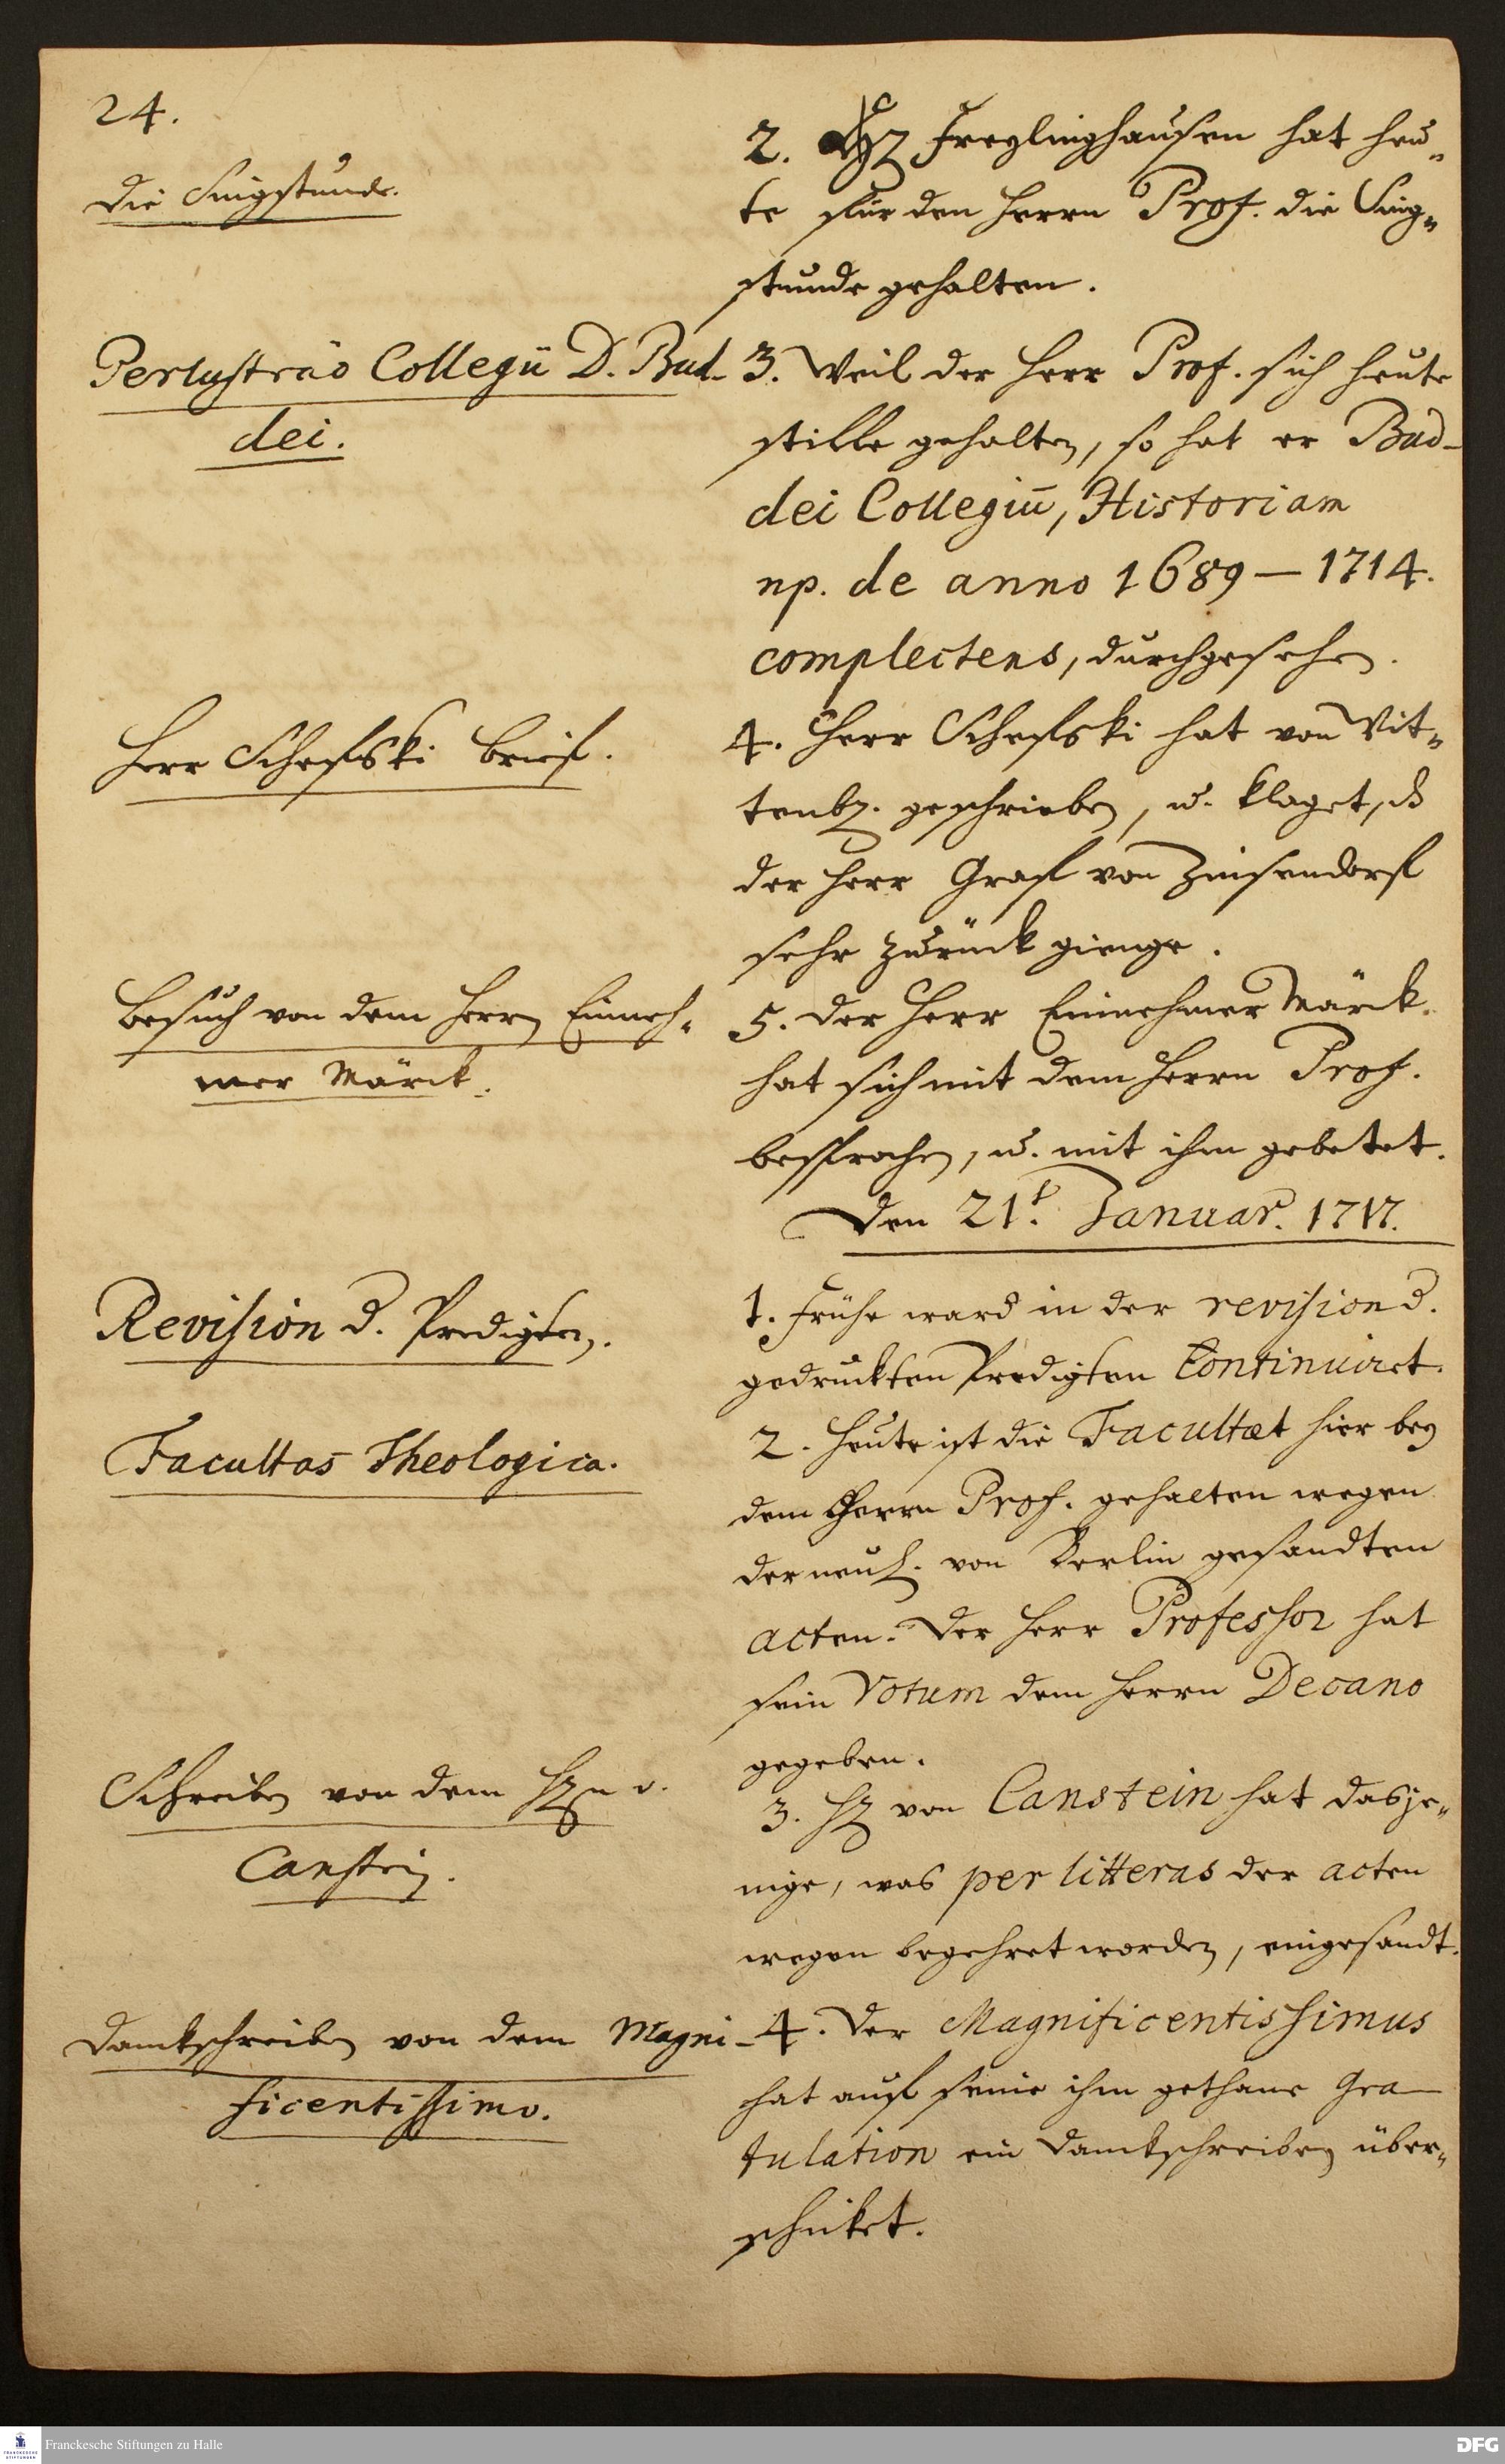 24.
Die Singstunde.
2. Hr Freylinghausen hat heu„
te für den Herrn Prof. die Sing„
stunde gehalten.
Perlustrāo Collegii D. Bud-
dei.
3. Weil der Herr Prof. sich heute
stille gehalten, so hat er Bud-
dei Collegiū, Historiam
np. de anno 1689 – 1714.
complectens, durchgesehen.
Herr Schefski brief.
4. Herr Schefski hat von Vit„
tenb. geschrieben, u. klaget, dß
der Herr Graf von Zinsendorf
sehr zurück gienge.
Besuch von dem Herrn Einneh„
mer Märck.
5. Der Herr Einnehmer Märck.
hat sich mit dem Herrn Prof.
besprochen, u. mit ihm gebetet.
Den 21t. Januar. 1717.
Revision d. Predigten.
1. Frühe ward in der revision d.
gedruckten Predigten Continuiret.
Facultas Theologica.
2. Heute ist die Facultæt hier bey
dem Herrn Prof. gehalten wegen
der neul. von Berlin gesandten
acten. Der Herr Professor hat
sein Votum dem Herrn Decano
gegeben.
Schreiben von dem Hrn v.
Canstein.
3. Hr von Canstein hat dasje„
nige, was per litteras der acten
wegen begehret worden, eingesandt.
Danckschreiben von dem Magni-
ficentissimo.
4. Der Magnificentissimus
hat auf seine ihm gethane Gra-
tulation ein Danckschreiben über„
schicket.
Franckesche Stiftungen zu Halle
DFG